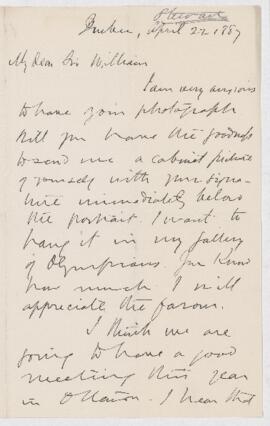 Stewart
Quebec, April 22 1887
My dear Sir William
I am very anxious
to have your photograph
Will you have the goodness
to send me a cabinet picture
of yourself with your signa-
ture immediately below
the portrait. I want to
hang it in my gallery
of Olympians. You know
how much I will
appreciate the favour.
I think we are
going to have a good
meeting this year
in Ottawa. I hear that